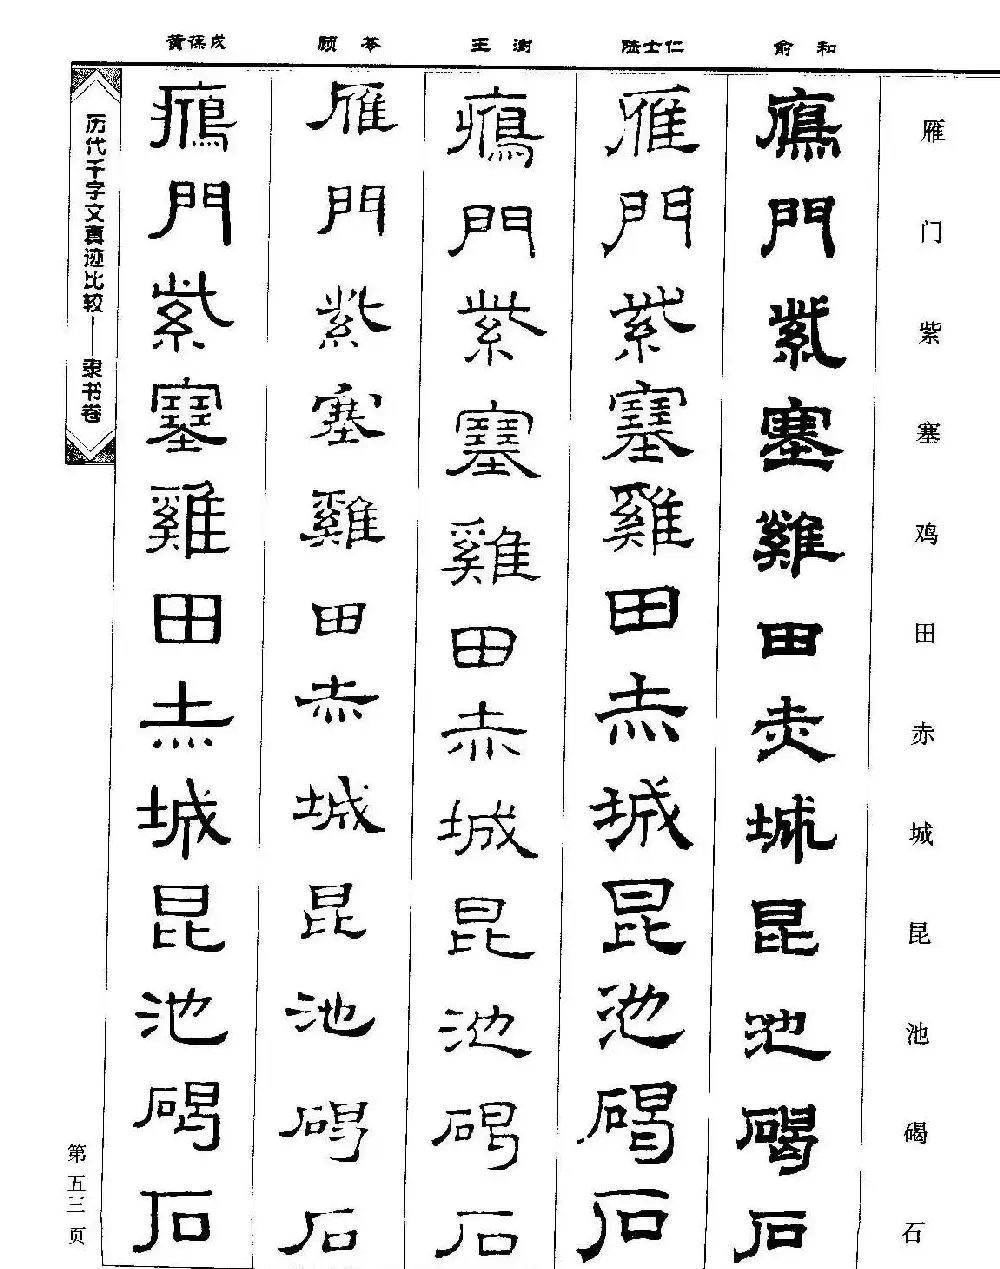 雁门紫塞鸡田赤城昆池碣石
俞和
鴈門紫塞雞田赤城昆池碣石
陆士仁
雁門紫塞雞田赤城昆池碣石
王澍
鴈門紫塞雞田赤城昆池碣石
顾苓
雁門紫塞雞田赤城昆池碣石
黄葆戉
鴈門紫塞雞田赤城昆池碣石
历代千字文真迹比较——隶书卷
第五三页